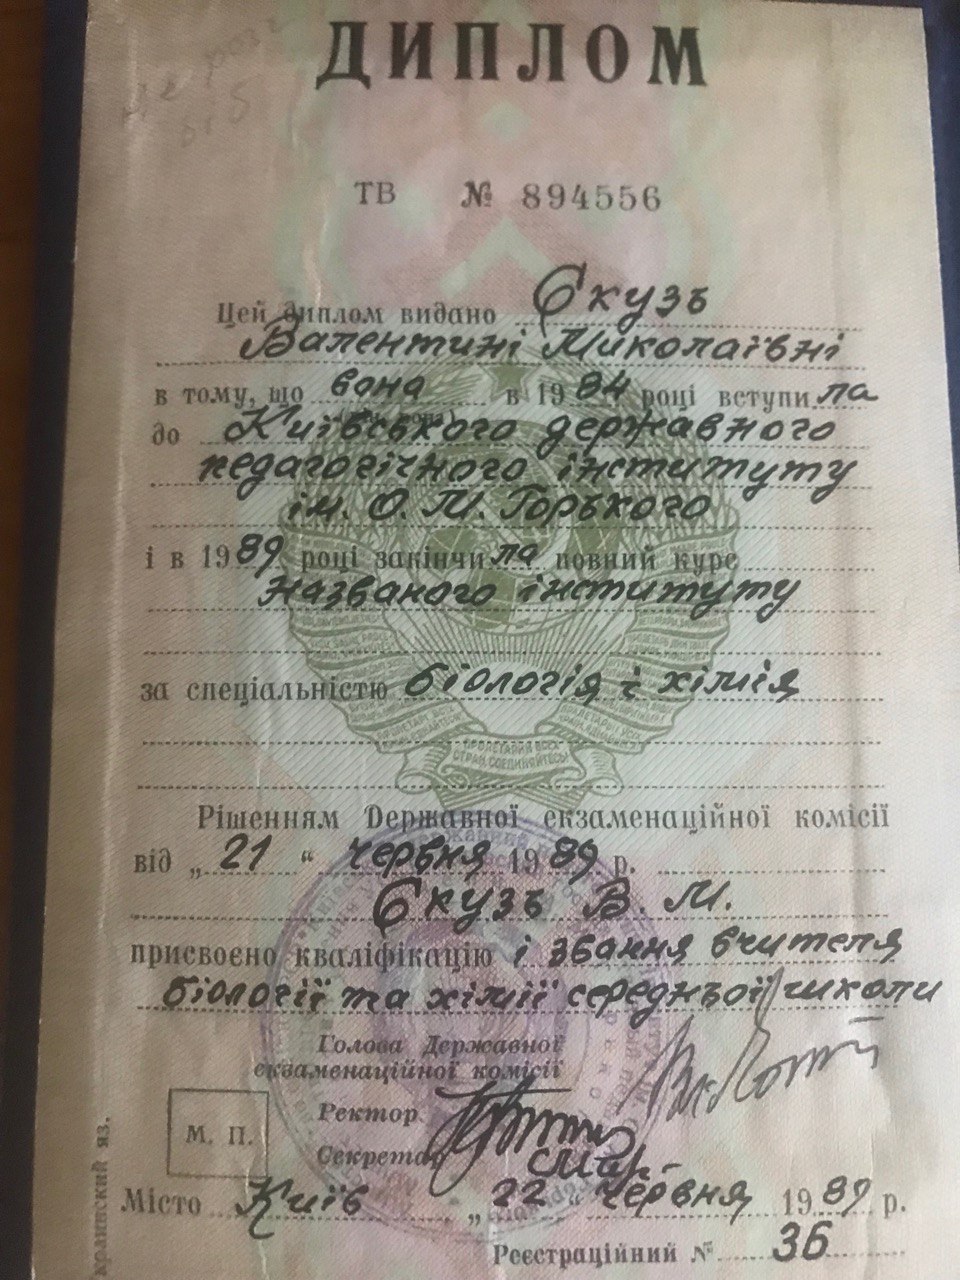 ДИПЛОМ
ТВ № 894556
Цей диплом видано Скузь
Валентині Миколаївні
в тому, що вона в 1984 році вступила
до Київського державного
педагогічного інституту
ім. О. М. Горького
і в 1989 році закінчила повний курс
названого інституту
за спеціальністю біологія і хімія
ПРОЛЕТАРИИ ВСЕХ
СТРАН, СОЕДИНЯЙТЕСЬ!
Рішенням Державної екзаменаційної комісії
від „21“ червня 1989 р.
Скузь В. М.
присвоєно кваліфікацію і звання вчителя
біології та хімії середньої школи
Голова Державної
екзаменаційної комісії
Ректор
М. П.
Секретар
Місто Київ „22“ червня 1989 р.
Реєстраційний № 36